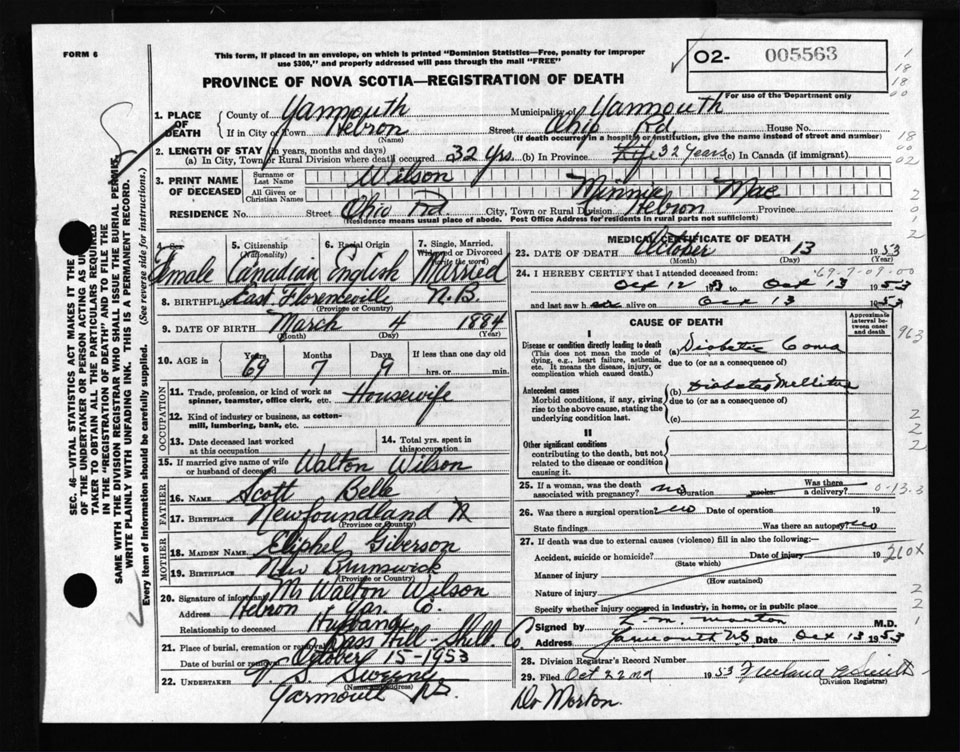 FORM 6
This form, if placed in an envelope, on which is printed "Dominion Statistics—Free, penalty for improper use $300," and properly addressed will pass through the mail "FREE"
02- 005563
For use of the Department only
PROVINCE OF NOVA SCOTIA—REGISTRATION OF DEATH
SEC. 46—VITAL STATISTICS ACT MAKES IT THE
OF THE UNDERTAKER OR PERSON ACTING AS UN
TAKER TO OBTAIN ALL THE PARTICULARS REQUIRED
IN THE "REGISTRATION OF DEATH" AND TO FILE THE
SAME WITH THE DIVISION REGISTRAR WHO SHALL ISSUE THE BURIAL PERMIT.
WRITE PLAINLY WITH UNFADING INK. THIS IS A PERMANENT RECORD.
Every item of information should be carefully supplied. (See reverse side for instructions.)
1. PLACE OF DEATH County of Yarmouth Municipality of Yarmouth
If in City or Town Hebron (Name) Street Ohio Rd House No.
(If death occurred in a hospital or institution, give the name instead of street and number)
2. LENGTH OF STAY (in years, months and days)
(a) In City, Town or Rural Division where death occurred 32 Yrs. (b) In Province Life 32 Years (c) In Canada (if immigrant)
3. PRINT NAME OF DECEASED Surname or Last Name Wilson
All Given or Christian Names Minnie Mae
RESIDENCE No. Street Ohio Rd. City, Town or Rural Division Hebron Province
(Residence means usual place of abode. Post Office Address for residents in rural parts not sufficient)
4. Sex Female
5. Citizenship (Nationality) Canadian
6. Racial Origin English
7. Single, Married, Widowed or Divorced (write the word) Married
8. BIRTHPLACE East Florenceville N.B. (Province or Country)
9. DATE OF BIRTH March 4 1884 (Month) (Day) (Year)
10. AGE in Years 69 Months 7 Days 9 If less than one day old hrs. or min.
OCCUPATION
11. Trade, profession, or kind of work as spinner, teamster, office clerk, etc. Housewife
12. Kind of industry or business, as cotton-mill, lumbering, bank, etc.
13. Date deceased last worked at this occupation
14. Total yrs. spent in this occupation
15. If married give name of wife or husband of deceased Walton Wilson
FATHER
16. NAME Scott Belle
17. BIRTHPLACE Newfoundland (Province or Country)
MOTHER
18. MAIDEN NAME Eliphel Giberson
19. BIRTHPLACE New Brunswick (Province or Country)
20. Signature of informant Mr Walton Wilson
Address Hebron Yar. Co.
Relationship to deceased Husband
21. Place of burial, cremation or removal Bass Hill - Shelb. Co.
Date of burial or removal October 15-1953
22. UNDERTAKER V. S. Sweeny (Name and address)
Yarmouth N.S.
MEDICAL CERTIFICATE OF DEATH
23. DATE OF DEATH October 13 1953 (Month) (Day) (Year)
24. I HEREBY CERTIFY that I attended deceased from:
69-7-09-00
Oct 12 to Oct 13 1953
and last saw her alive on Oct 13 1953
CAUSE OF DEATH
Approximate interval between onset and death
I
Disease or condition directly leading to death (a) Diabetic Coma
(This does not mean the mode of dying, e.g., heart failure, asthenia, etc. It means the disease, injury, or complication which caused death.)
due to (or as a consequence of)
Antecedent causes (b) Diabetes Mellitus
Morbid conditions, if any, giving rise to the above cause, stating the underlying condition last.
due to (or as a consequence of)
(c)
II
Other significant conditions contributing to the death, but not related to the disease or condition causing it.
25. If a woman, was the death associated with pregnancy? no Duration weeks. Was there a delivery?
26. Was there a surgical operation? no Date of operation 19
State findings Was there an autopsy? no
27. If death was due to external causes (violence) fill in also the following:
Accident, suicide or homicide? (State which) Date of injury 19
260X
Manner of injury (How sustained)
Nature of injury
Specify whether injury occurred in industry, in home, or in public place
Signed by L. M. Morton M.D.
Address Yarmouth NS Date Oct 13 1953
28. Division Registrar's Record Number
29. Filed Oct 22nd 1953 (Division Registrar)
Dr Morton.